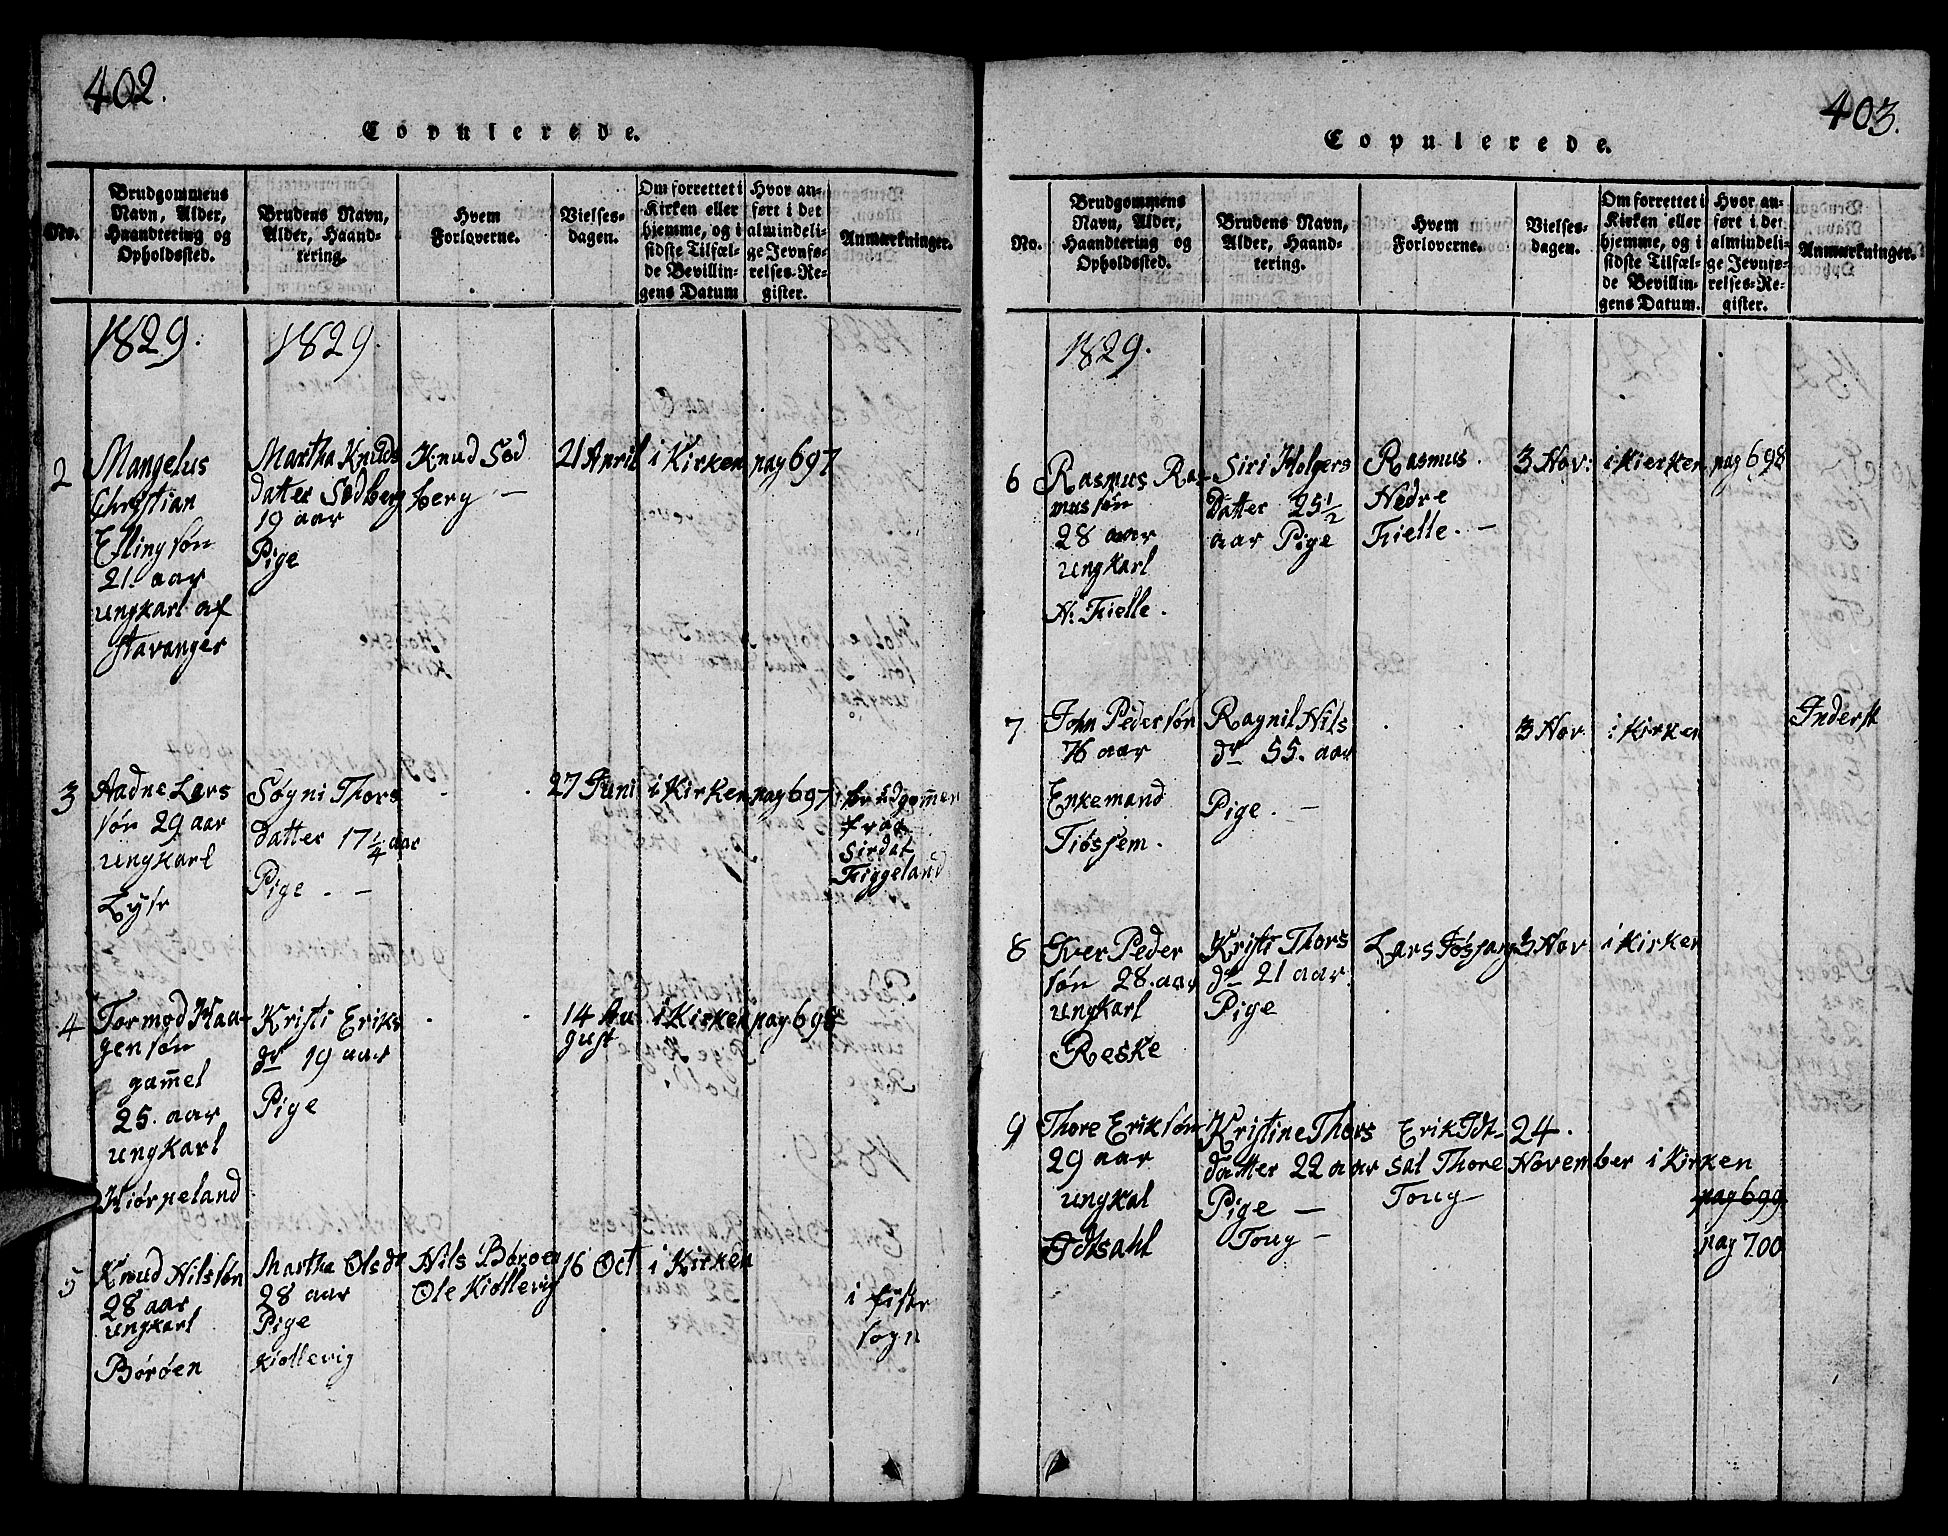 402.
Copulerede.
No.
Brudgommens
Navn, Alder,
Haandtering og
Opholdssted.
Brudens Navn,
Alder, Haand-
tering.
Hvem
Forloverne.
Vielses-
dagen.
Om forrettet i
Kirken eller
hjemme, og i
sidste Tilfæl-
de Bevillin-
gens Datum
Hvor an-
ført i det
almindeli-
ge Jevnfø-
relses-Re-
gister.
Anmærkninger.
1829.
1829.
2
Mangelus
Christian
Elling søn
21. aar
ungkarl af
Stavanger
Martha Knuds
datter Sødberg
19 aar
Pige
Knud Sød
berg —
21 April
i Kirken
pag 697
3
Aadne Lars
søn 29 aar
ungkarl
Lyse
Søgni Thors
datter 17 1/4 aar
Pige . —
27 Juni
i Kirken
pag 697
brudgom̄en
fraa
Sirdal
Figgeland
4
Tormod Haa-
gensøn
gam̄el
25. aar
ungkarl
Hiørpeland
Kristi Eriks
dr 19 aar
Pige
14 Au
gust
i Kirken
pag 698
5
Knud Nilssøn
28 aar
ungkarl
Børøen
Martha Olsdr
28 aar
Pige
Kiøllevig
Nils Børøen
Ole Kiøllevig
16 Oct
i Kirken
i Fister
sogn
403.
Copulerede.
No.
Brudgommens
Navn, Alder,
Haandtering og
Opholdssted.
Brudens Navn,
Alder, Haand-
tering.
Hvem
Forloverne.
Vielses-
dagen.
Om forrettet i
Kirken eller
hjemme, og i
sidste Tilfæl-
de Bevillin-
gens Datum.
Hvor an-
ført i det
almindeli-
ge Jevnfø-
relses-Re-
gister.
Anmærkninger.
1829.
6
Rasmus Ras-
mussøn
28 aar
ungkarl
N. Fielle.
Siri Holgers
Datter 25 1/2
aar Pige
Rasmus
Nedre
Fielle. —
3 Nov:
i Kierken
pag 698
7
John Pedersøn
76 aar
Enkemand
Tiøssem.
Ragnil Nils
dr 55. aar
Pige. —
3 Nov
i Kirken
Inderst
8
Iver Peder
søn 28. aar
ungkarl
Reske
Kristi Thors
dr 21 aar.
Pige
Lars Føssang
3 Nov
i Kirken
9
Thore Eriksøn
29 aar
ungkal
Idtsahl
Kristine Thors
datter 22 aar
Pige —
Toug —
Erik Idt-
sal Thore
Toug
24.
November
i Kirken
pag 699.
pag 700